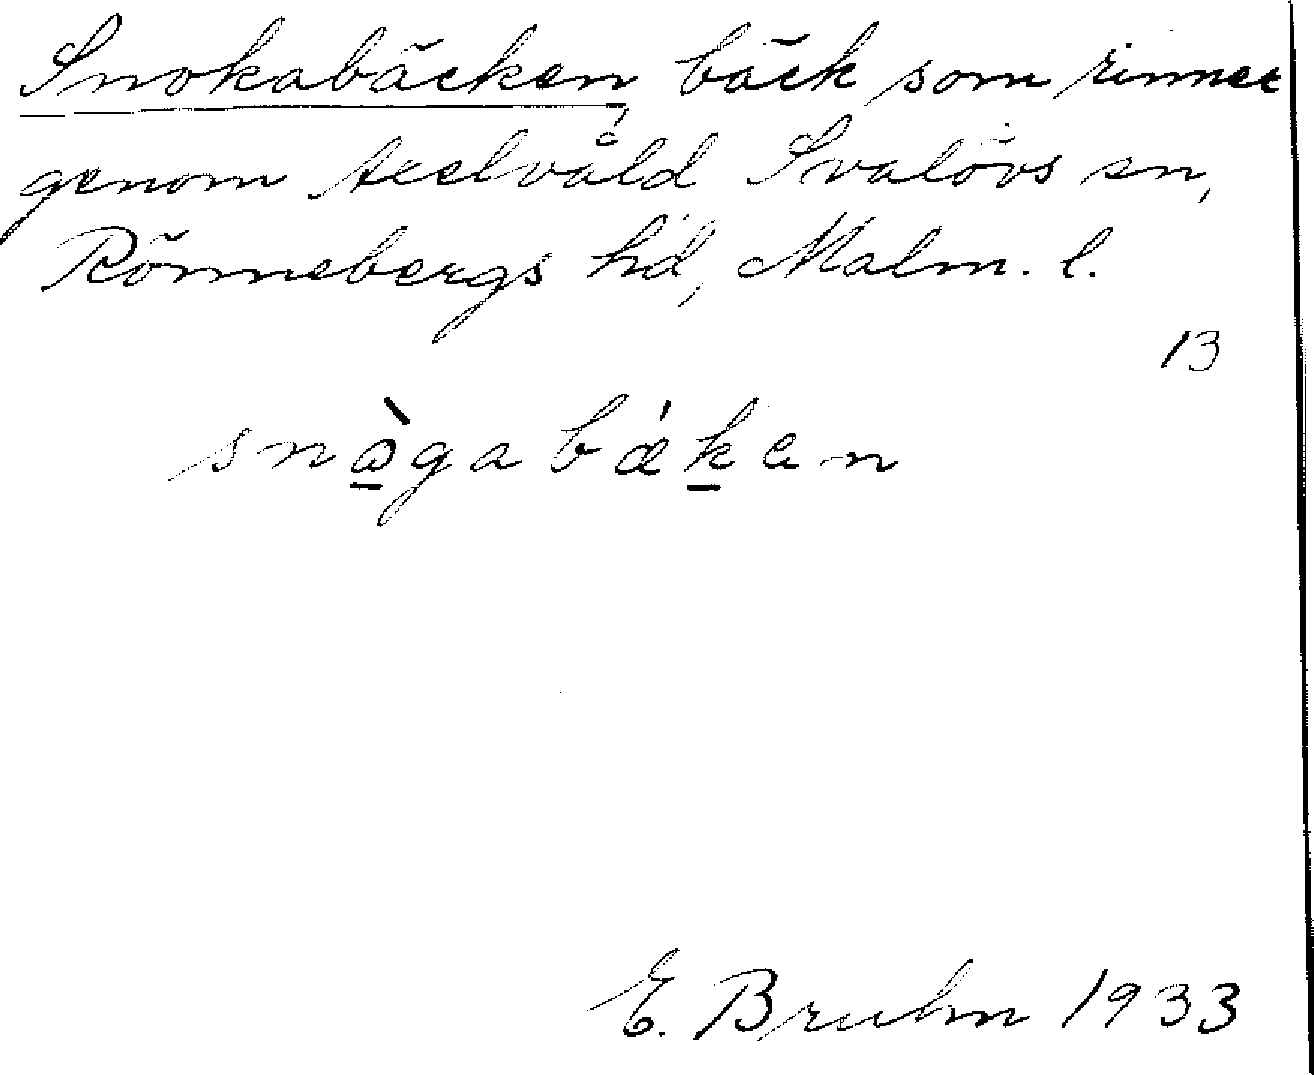 Snokabäcken, bäck som rinner
genom Axelvåld Svalövs sn,
Rönnebergs hd, Malm. l.
13
snågabæken
E. Bruhn 1933